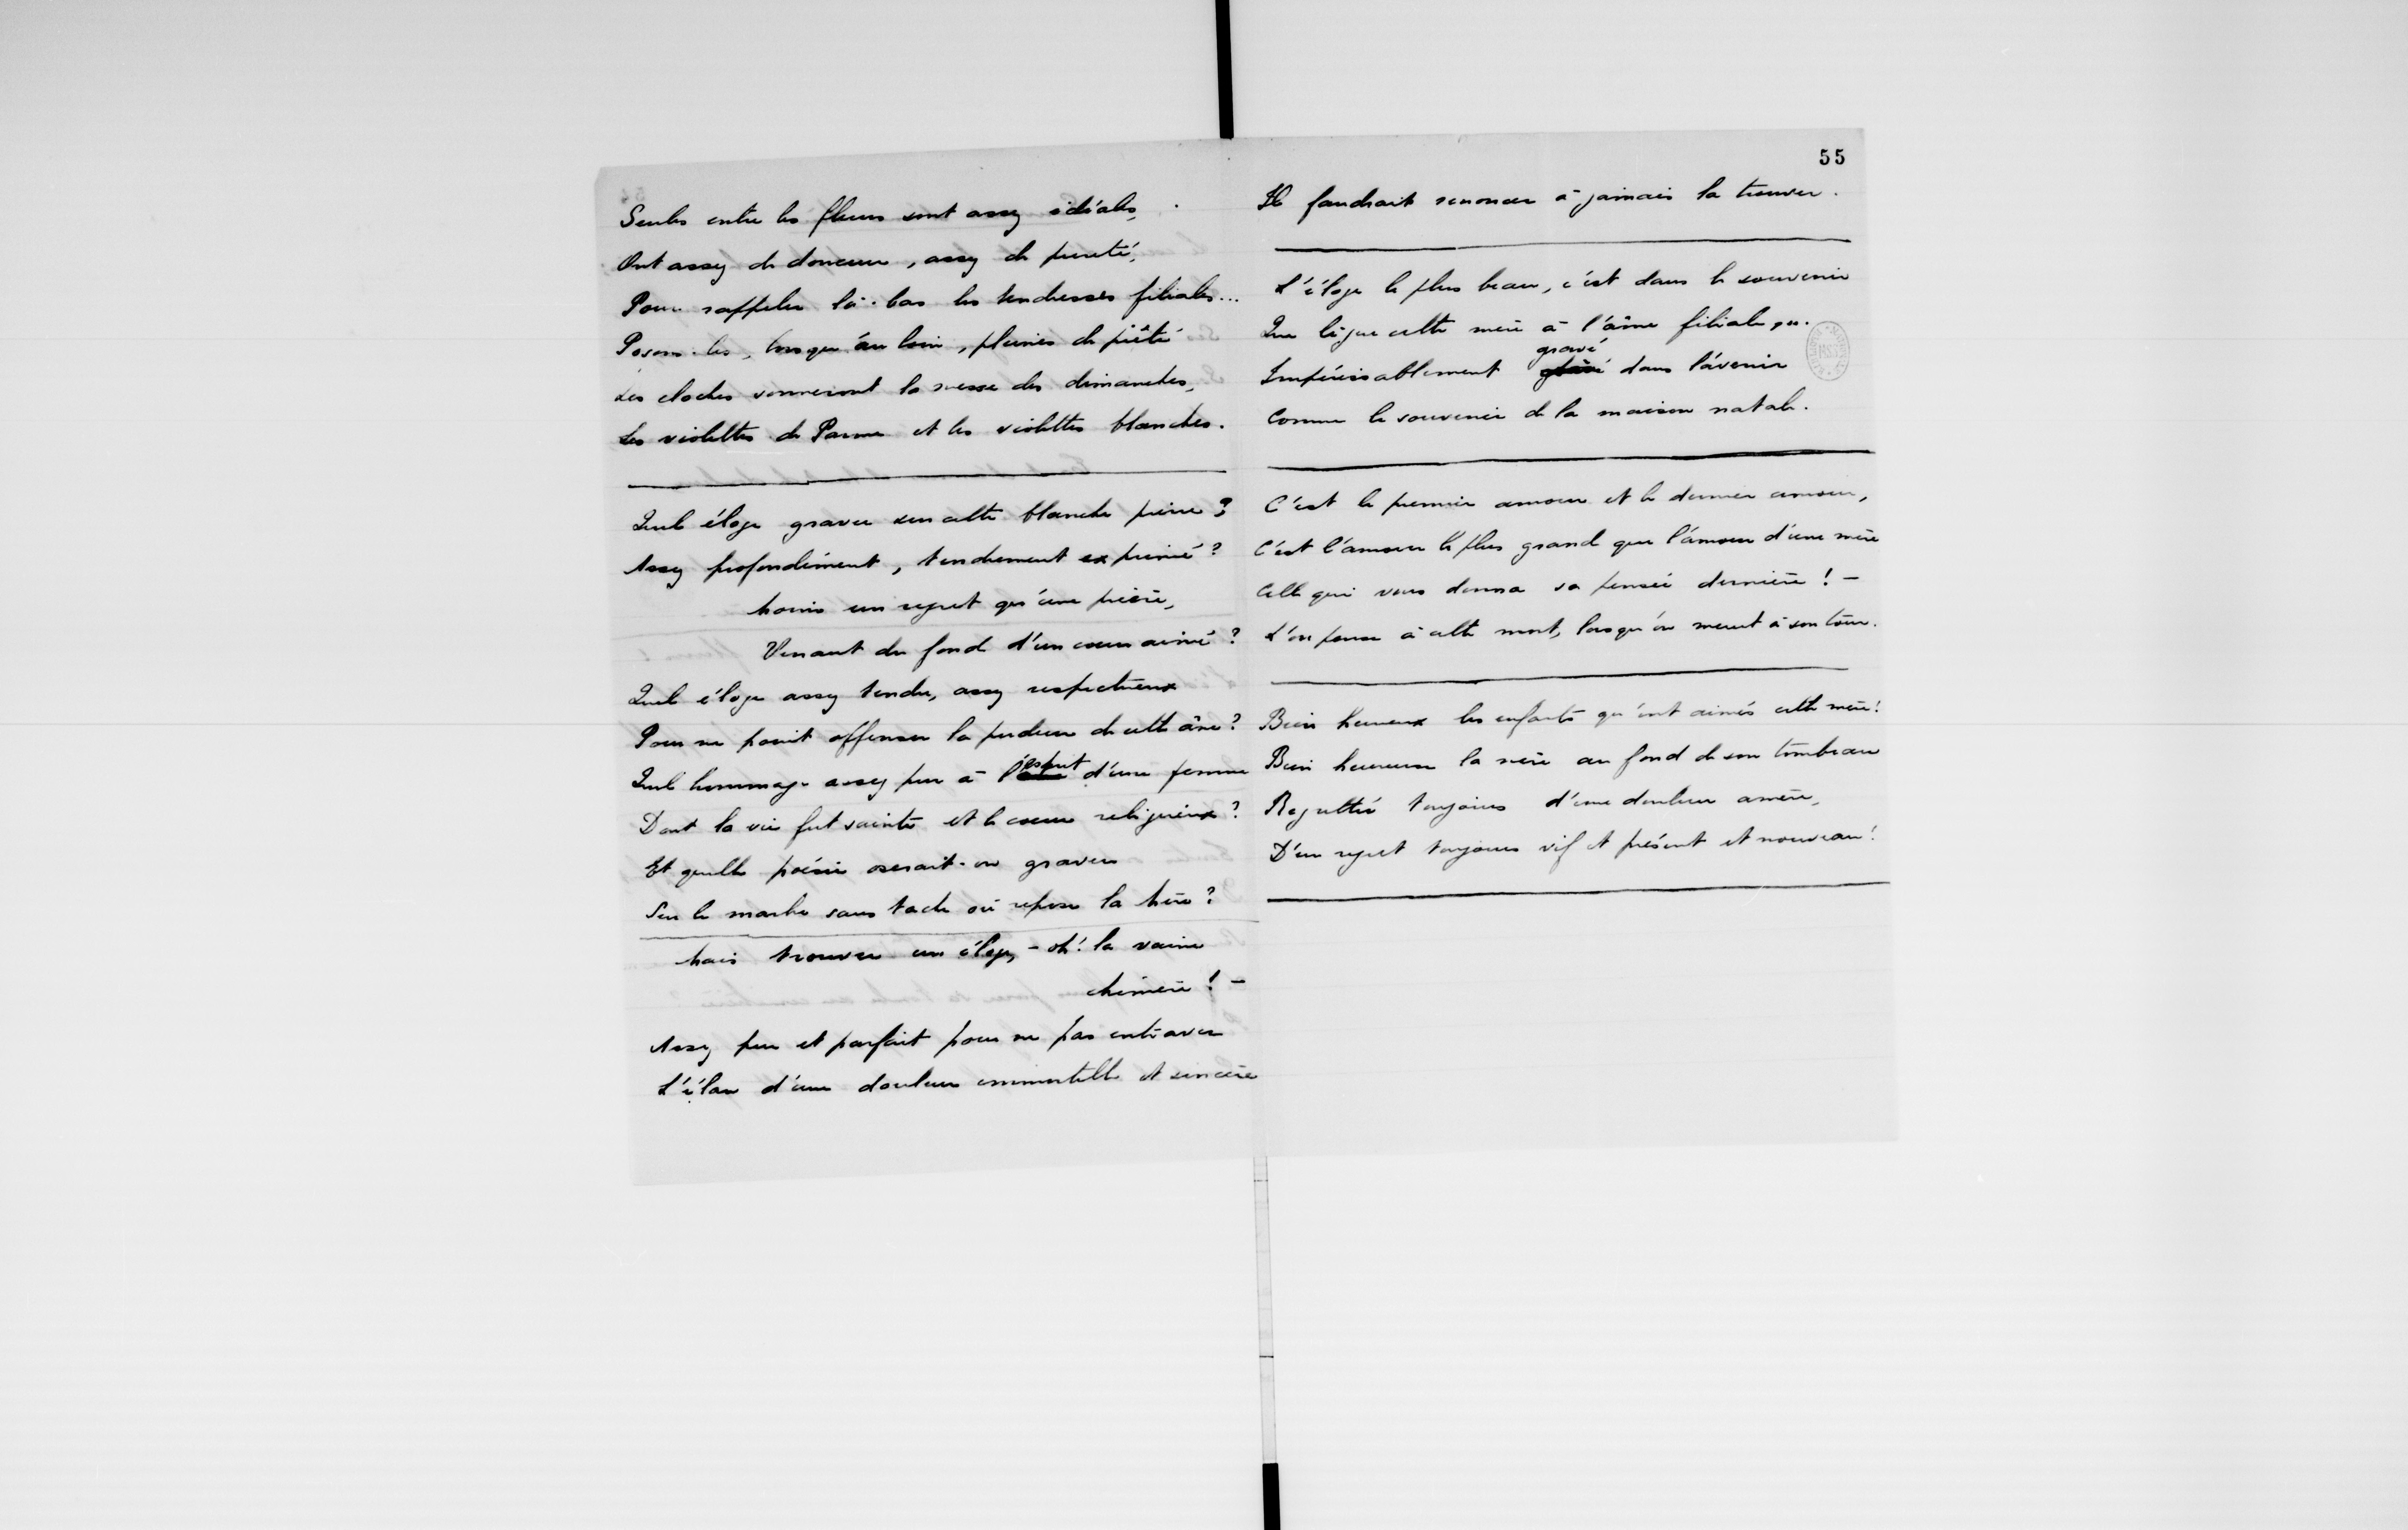 Seules entre les fleurs sont assez idéales,
Ont assez de douceur, assez de pureté,
Pour rappeler là-bas les tendresses filiales...
Posons-les, lorsqu'au loin, pleines de piété
Les cloches sonneront la messe des dimanches,
Les violettes de Parme et les violettes blanches.
Quel éloge graver sur cette blanche pierre ?
Assez profondément, tendrement exprimé ?
Moins un regret qu'une prière,
Venant du fond d'un cœur aimé ?
Quel éloge assez tendre, assez respectueux
Pour ne point offenser la pudeur de cette âme ?
Quel hommage assez pur à l'esprit d'une femme
Dont la vie fut sainte et le cœur religieux ?
Et quelle poésie oserait-on graver
Sur le marbre sans tache où repose la Mère ?
Mais trouver un éloge, - oh ! la vaine
chimère ! -
Assez pur et parfait pour ne pas entraver
L'élan d'une douleur immortelle et sincère
55
Il faudrait renoncer à jamais la trouver.
L'éloge le plus beau, c'est dans le souvenir
Que lègue cette mère à l'âme filiale,
gravé
Impérissablement dans l'avenir
Comme le souvenir de la maison natale.
C'est le premier amour et le dernier amour,
C'est l'amour le plus grand que l'amour d'une mère
Celle qui vous donna sa pensée dernière ! -
L'on pense à cette mort, lorsqu'on meurt à son tour.
Bien heureux les enfants qu'ont aimés cette mère !
Bien heureuse la mère au fond de son tombeau
Regrettée toujours d'une douleur amère,
D'un regret toujours vif et présent et nouveau !